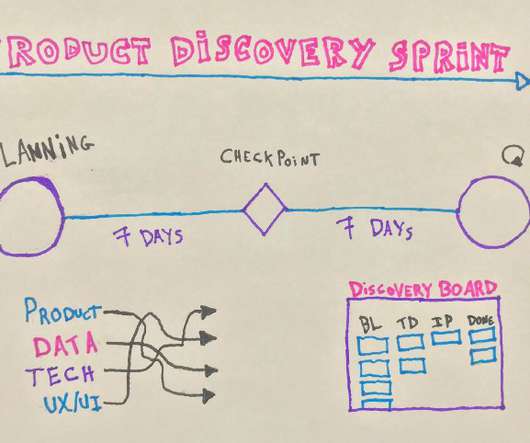 RODUCT DISCOVERY SPRINT
LANNING
CHECKPOINT
7 DAYS
7 DAYS
PRODUCT
DATA
TECH
UX/UI
DISCOVERY BOARD
BL TD IP DONE